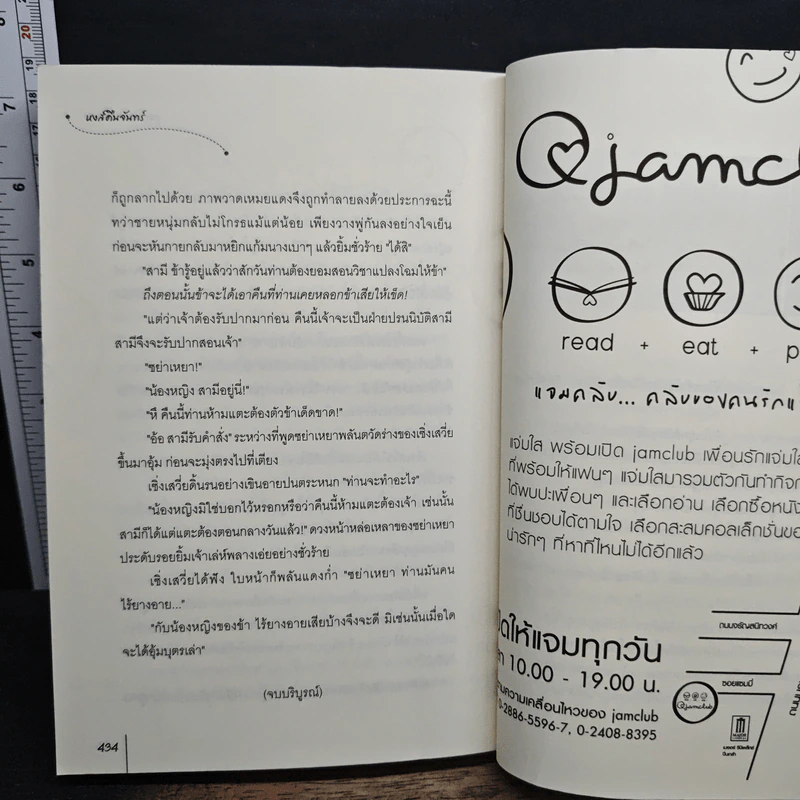 หงส์คืนจันทร์
ก็ถูกลากไปด้วย ภาพวาดเหมยแดงจึงถูกทำลายลงด้วยประการฉะนี้
ทว่าชายหนุ่มกลับไม่โกรธแม้แต่น้อย เพียงวางพู่กันลงอย่างใจเย็น
ก่อนจะหันกายกลับมาหยิกแก้มนางเบาๆ แล้วยิ้มชั่วร้าย "ได้สิ"
"สามี ข้ารู้อยู่แล้วว่าสักวันท่านต้องยอมสอนวิชาแปลงโฉมให้ข้า"
ถึงตอนนั้นข้าจะได้เอาคืนที่ท่านเคยหลอกข้าเสียให้เข็ด!
"แต่ว่าเจ้าต้องรับปากมาก่อน คืนนี้เจ้าจะเป็นฝ่ายปรนนิบัติสามี
สามีจึงจะรับปากสอนเจ้า"
"ซย่าเหยา!"
"น้องหญิง สามีอยู่นี่!"
"หึ คืนนี้ท่านห้ามแตะต้องตัวข้าเด็ดขาด!"
"อ้อ สามีรับคำสั่ง" ระหว่างที่พูดซย่าเหยาพลันตวัดร่างของเซิ่งเสวี่ย
ขึ้นมาอุ้ม ก่อนจะมุ่งตรงไปที่เตียง
เซิ่งเสวี่ยดิ้นรนอย่างเขินอายปนตระหนก "ท่านจะทำอะไร"
"น้องหญิงมิใช่บอกไว้หรอกหรือว่าคืนนี้ห้ามแตะต้องเจ้า เช่นนั้น
สามีก็ได้แต่แตะต้องตอนกลางวันแล้ว!" ดวงหน้าหล่อเหลาของซย่าเหยา
ประดับรอยยิ้มเจ้าเล่ห์พลางเอ่ยอย่างชั่วร้าย
เซิ่งเสวี่ยได้ฟัง ใบหน้าก็พลันแดงก่ำ "ซย่าเหยา ท่านมันคน
ไร้ยางอาย..."
"กับน้องหญิงของข้า ไร้ยางอายเสียบ้างจึงจะดี มิเช่นนั้นเมื่อใด
จะได้อุ้มบุตรเล่า"
(จบบริบูรณ์)
434
jamcl
read + eat + p
แจมคลับ... คลับของคนรักแ
แจ่มใส พร้อมเปิด jamclub เพื่อนรักแจ่มใส
ที่พร้อมให้แฟนๆ แจ่มใสมารวมตัวกันทำกิจก
ได้พบปะเพื่อนๆ และเลือกอ่าน เลือกซื้อหนัง
ที่ชื่นชอบได้ตามใจ เลือกสะสมคอลเล็กชั่นขอ
น่ารักๆ ที่หาที่ไหนไม่ได้อีกแล้ว
ดให้แจมทุกวัน
10.00 - 19.00 น.
ความเคลื่อนไหวของ jamclub
0-2886-5596-7, 0-2408-8395
ถนนจรัญสนิทวงศ์
ซอยแซมมี่
jamclub